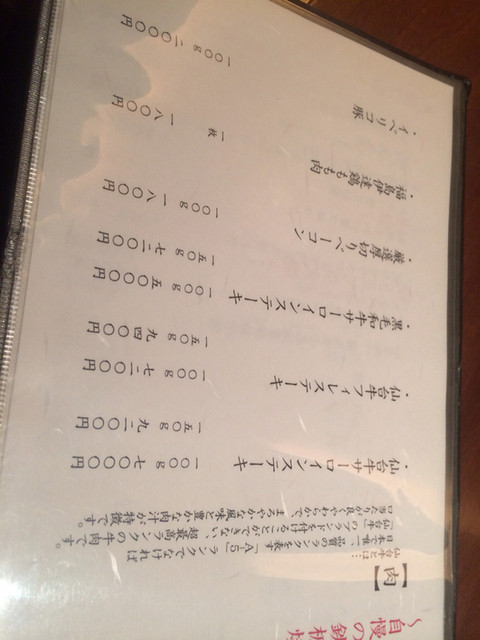 〜自慢の鉄板焼
【肉】
仙台牛とは…
日本で唯一、品質のランクを表す「A-5」ランクでなければ
「仙台牛」のブランドを付けることができない、超最高ランクの牛肉です。
口当たりが良くやわらかで、まろやかな風味と豊かな肉汁が特徴です。
・仙台牛サーロインステーキ 一〇〇g 七〇〇〇円
一五〇g 九二〇〇円
・仙台牛フィレステーキ 一〇〇g 七二〇〇円
一五〇g 九四〇〇円
・黒毛和牛サーロインステーキ 一〇〇g 五〇〇〇円
一五〇g 七二〇〇円
・厳選厚切りベーコン 一〇〇g 一八〇〇円
・福島伊達鶏もも肉 一枚 一八〇〇円
・イベリコ豚 一〇〇g 二〇〇〇円